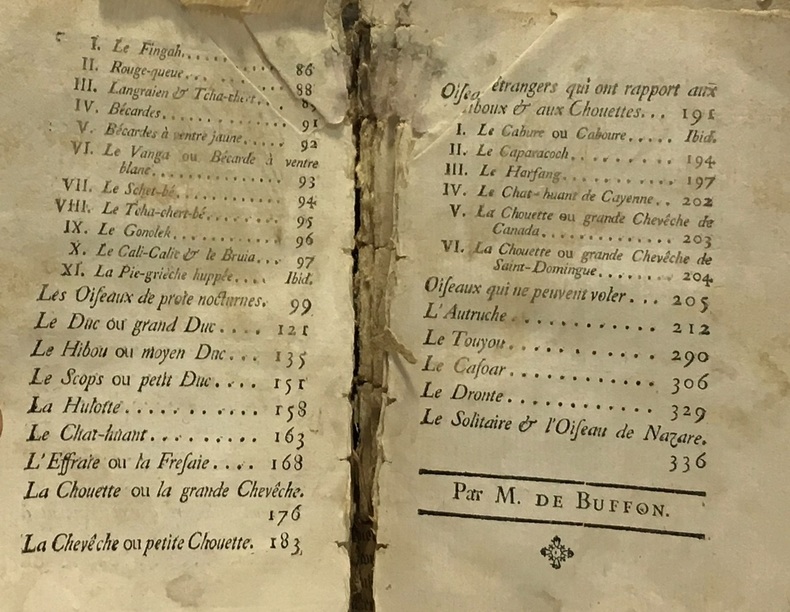 I. Le Fingah........ 86
II. Rouge-queue....... 88
III. Langraien & Tcha-chert... 89
IV. Bécardes........ 91
V. Bécardes à ventre jaune..... 92
VI. Le Vanga ou Bécarde à ventre
blanc............ 93
VII. Le Schet-bé......... 94
VIII. Le Tcha-chert-bé...... 95
IX. Le Gonolek........ 96
X. Le Cali-Calic & le Bruia... 97
XI. La Pie-grièche huppée.... Ibid.
Les Oiseaux de proie nocturnes. 99
Le Duc ou grand Duc.... 121
Le Hibou ou moyen Duc... 135
Le Scops ou petit Duc.... 151
La Hulotte.......... 158
Le Chat-huant........ 163
L'Effraie ou la Fresaie.... 168
La Chouette ou la grande Chevêche.
176
La Chevêche ou petite Chouette. 183
Oisea étrangers qui ont rapport aux
iboux & aux Chouettes... 191
I. Le Cabure ou Caboure..... Ibid.
II. Le Caparacoch........ 194
III. Le Harfang......... 197
IV. Le Chat-huant de Cayenne.. 202
V. La Chouette ou grande Chevêche de
Canada............ 203
VI. La Chouette ou grande Chevêche de
Saint-Domingue....... 204
Oiseaux qui ne peuvent voler... 205
L'Autruche........... 212
Le Touyou........... 290
Le Casoar........... 306
Le Dronte........... 329
Le Solitaire & l'Oiseau de Nazare.
336
Par M. DE BUFFON.